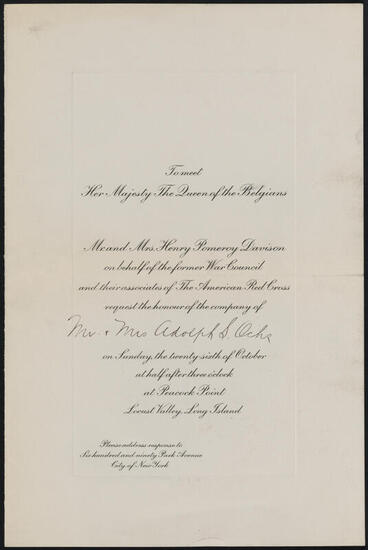 To meet
Her Majesty The Queen of the Belgians
Mr. and Mrs. Henry Pomeroy Davison
on behalf of the former War Council
and their associates of The American Red Cross
request the honour of the company of
Mr. & Mrs Adolph S. Ochs
on Sunday, the twenty-sixth of October
at half after three o'clock
at Peacock Point
Locust Valley, Long Island
Please address response to
Six hundred and ninety Park Avenue
City of New York